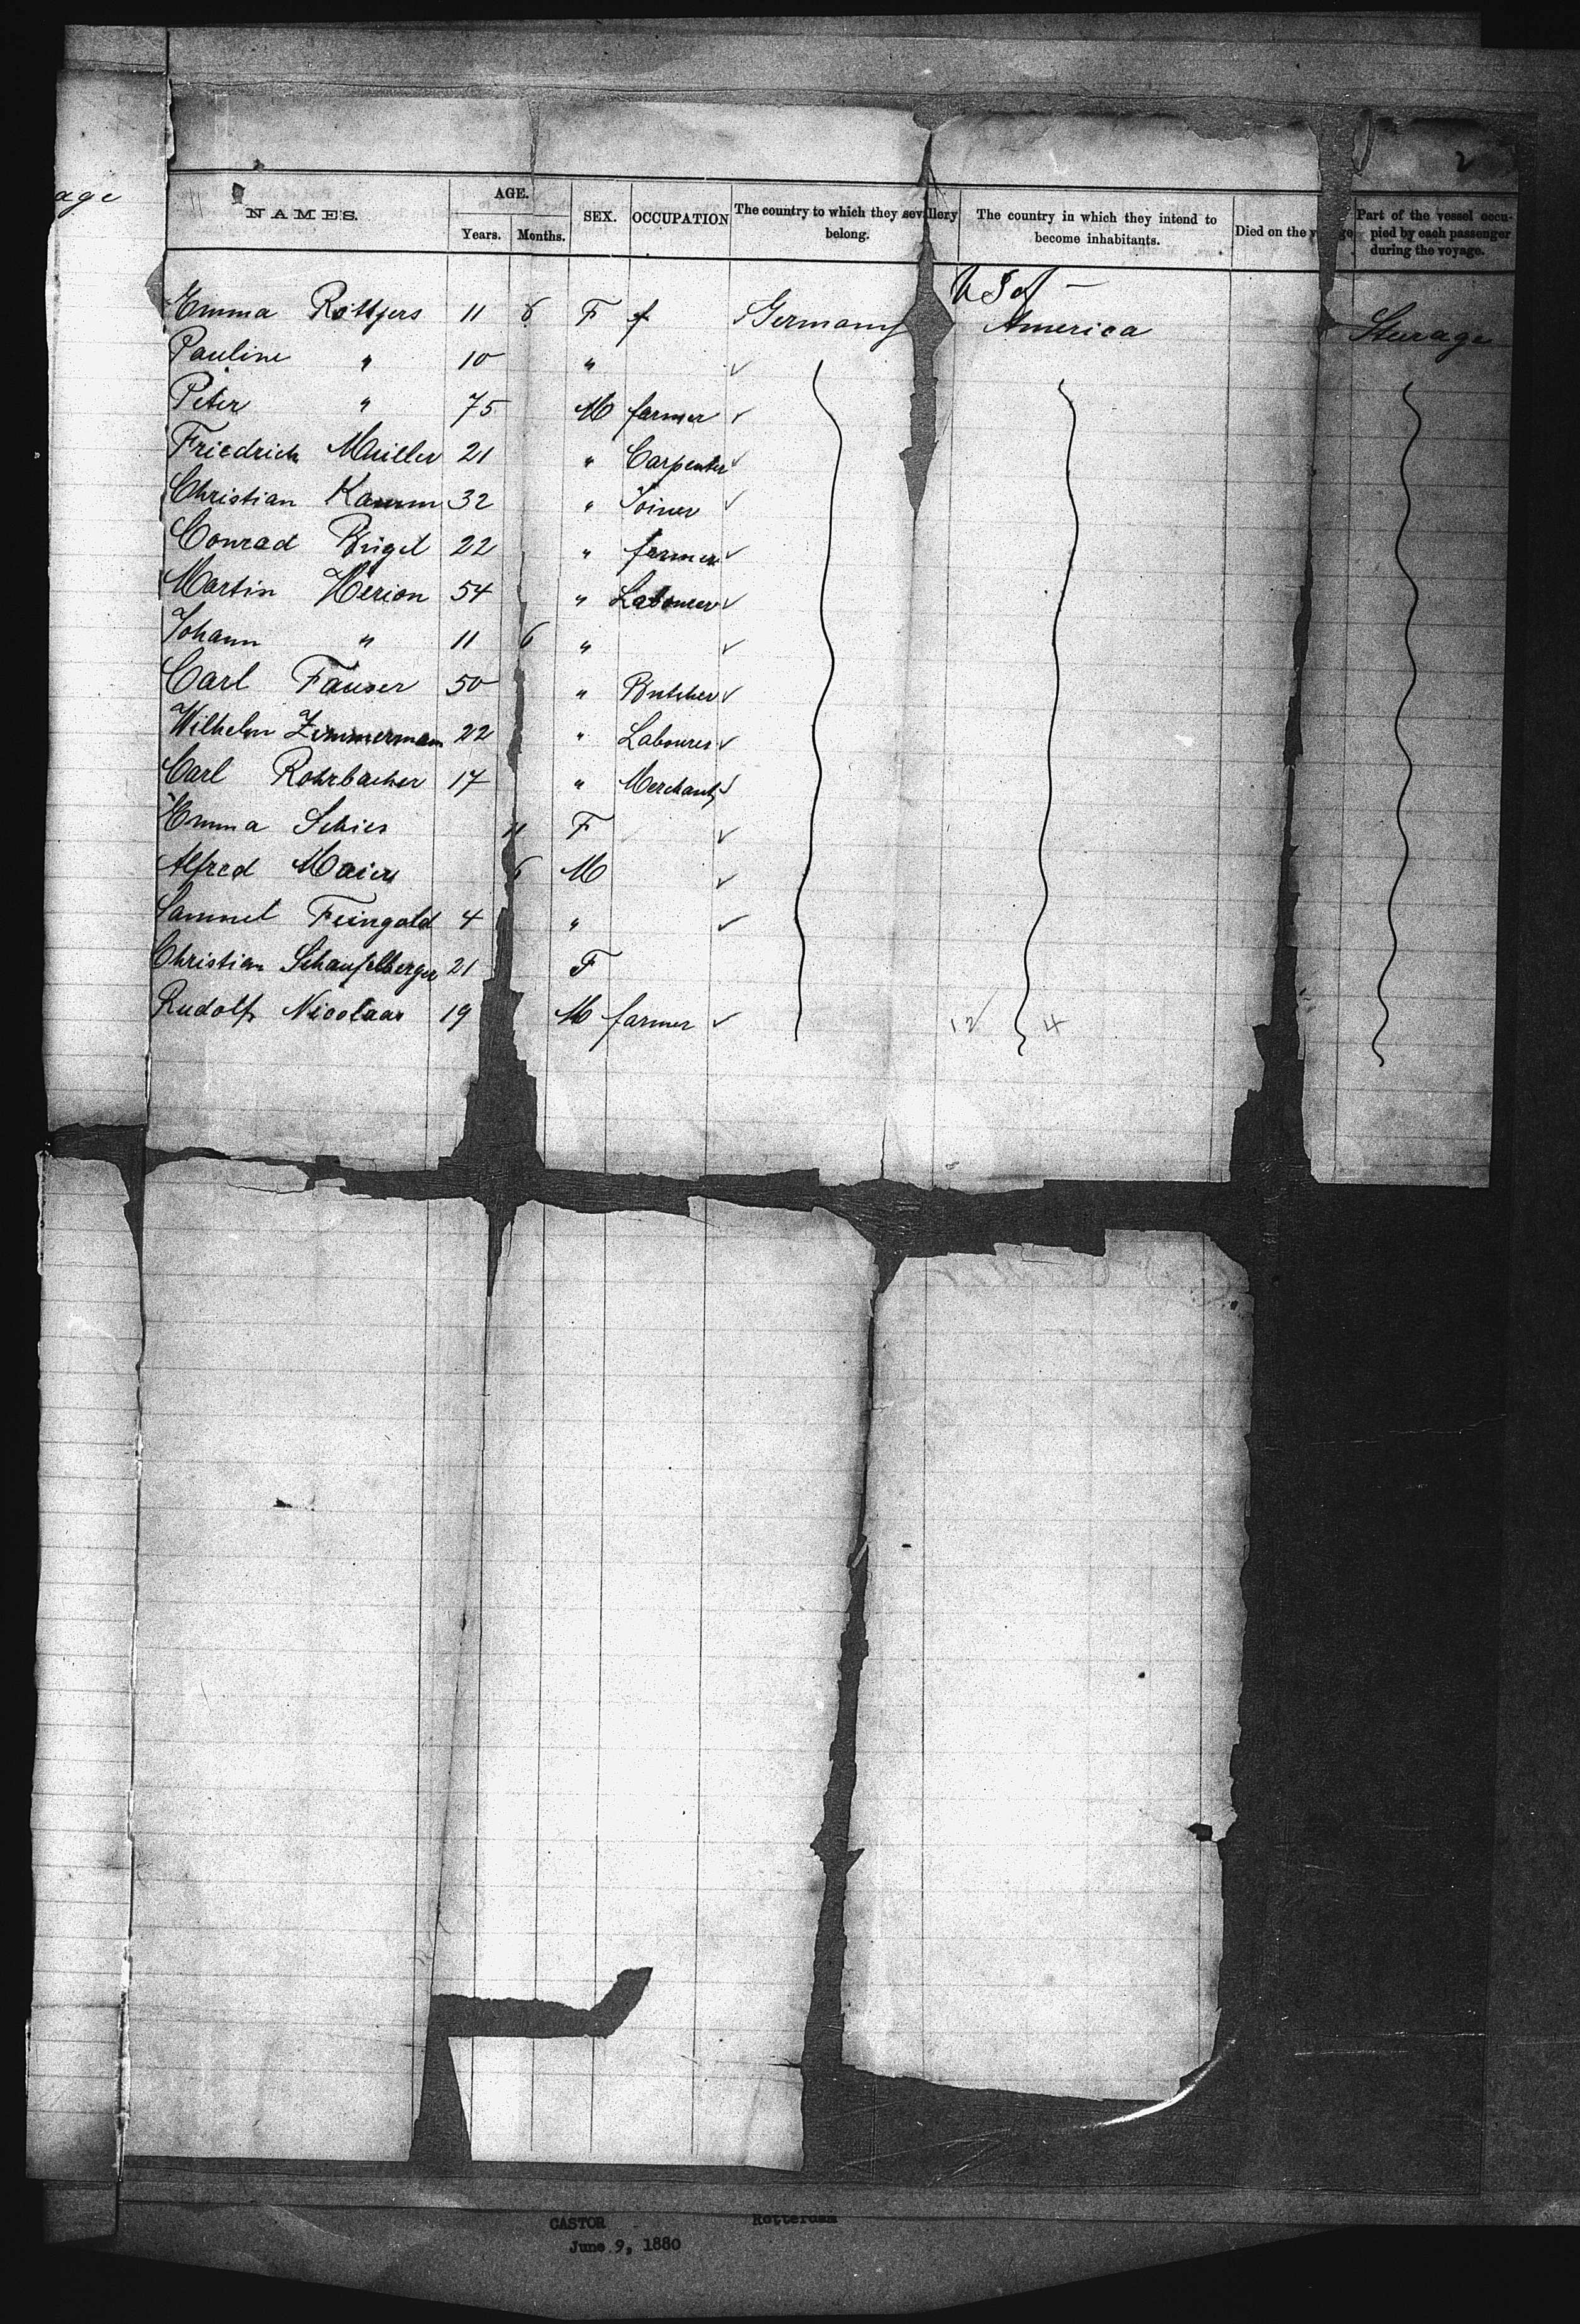 2
age
NAMES. AGE. Years. Months. SEX. OCCUPATION The country to which they sev llery belong. The country in which they intend to become inhabitants. Died on the v ge Part of the vessel occu- pied by each passenger during the voyage.
Emma Röttgers 11 6 F f Germany U S of America Sturage
Pauline " 10 "
Peter " 75 M farmer
Friedrich Müller 21 " Carpenter
Christian 32 " Joiner
Conrad 22 " farmer
Martin Herion 54 " Labourer
Johann " 11 6 "
Carl Fauser 50 " Butcher
Wilhelm Zimmerman 22 " Labourer
Carl Rohrbacher 17 " Merchant
Emma Schies 11 F
Alfred Maier 6 M
Samuel Feingold 4 "
Christian Schaufelberger 21 F
Rudolf Nicolaus 19 M farmer 12 4
CASTOR Rotterdam
June 9, 1880